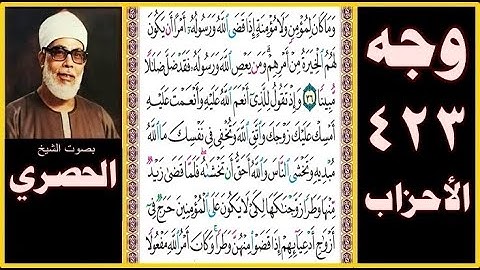 وجه
٤٢٣
الأحزاب
وَمَا كَانَ لِمُؤْمِنٍ وَلَا مُؤْمِنَةٍ إِذَا قَضَى ٱللَّهُ وَرَسُولُهُۥٓ أَمْرًا أَن يَكُونَ
لَهُمُ ٱلْخِيَرَةُ مِنْ أَمْرِهِمْ ۗ وَمَن يَعْصِ ٱللَّهَ وَرَسُولَهُۥ فَقَدْ ضَلَّ ضَلَٰلًا
مُّبِينًا ٣٦ وَإِذْ تَقُولُ لِلَّذِىٓ أَنْعَمَ ٱللَّهُ عَلَيْهِ وَأَنْعَمْتَ عَلَيْهِ
أَمْسِكْ عَلَيْكَ زَوْجَكَ وَٱتَّقِ ٱللَّهَ وَتُخْفِى فِى نَفْسِكَ مَا ٱللَّهُ
مُبْدِيهِ وَتَخْشَى ٱلنَّاسَ وَٱللَّهُ أَحَقُّ أَن تَخْشَىٰهُ ۖ فَلَمَّا قَضَىٰ زَيْدٌ
مِّنْهَا وَطَرًا زَوَّجْنَٰكَهَا لِكَىْ لَا يَكُونَ عَلَى ٱلْمُؤْمِنِينَ حَرَجٌ فِىٓ
أَزْوَٰجِ أَدْعِيَآئِهِمْ إِذَا قَضَوْا۟ مِنْهُنَّ وَطَرًا ۚ وَكَانَ أَمْرُ ٱللَّهِ مَفْعُولًا
بصوت الشيخ
الحصري